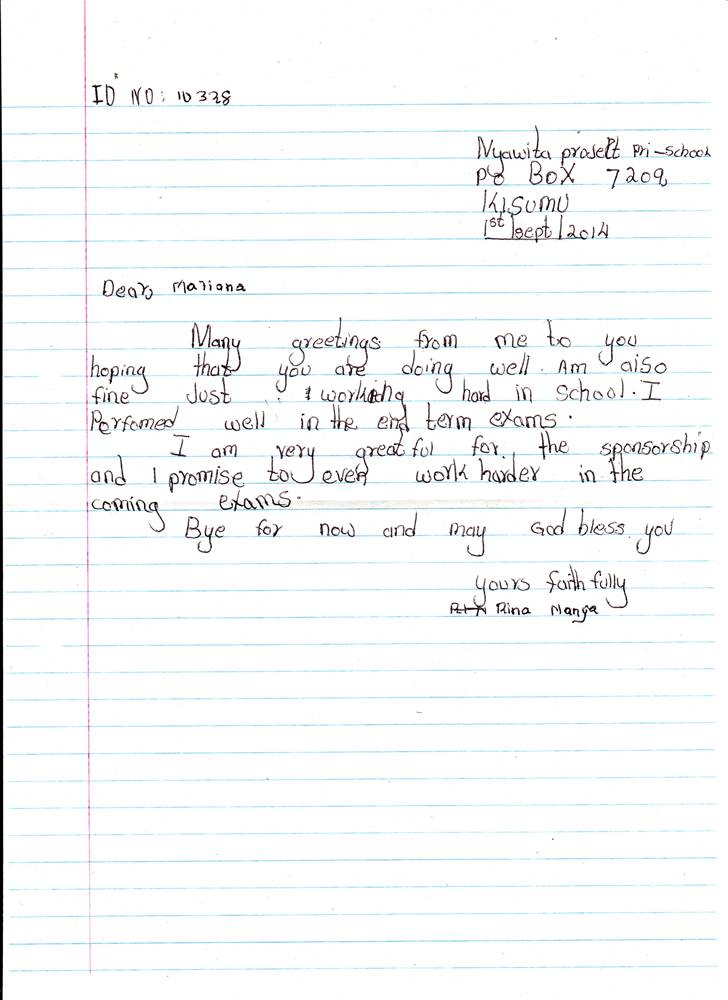 ID NO: 10328
Nyawita project Pri-School
PO BOX 7209
KISUMU
1st sept 2014
Dear, Mariana
Many greetings from me to you
hoping that you are doing well. Am also
fine Just working hard in school. I
Perfomed well in the end term exams.
I am very greatful for the sponsorship
and I promise to even work harder in the
coming exams.
Bye for now and may God bless you
yours faithfully
Rina Manga